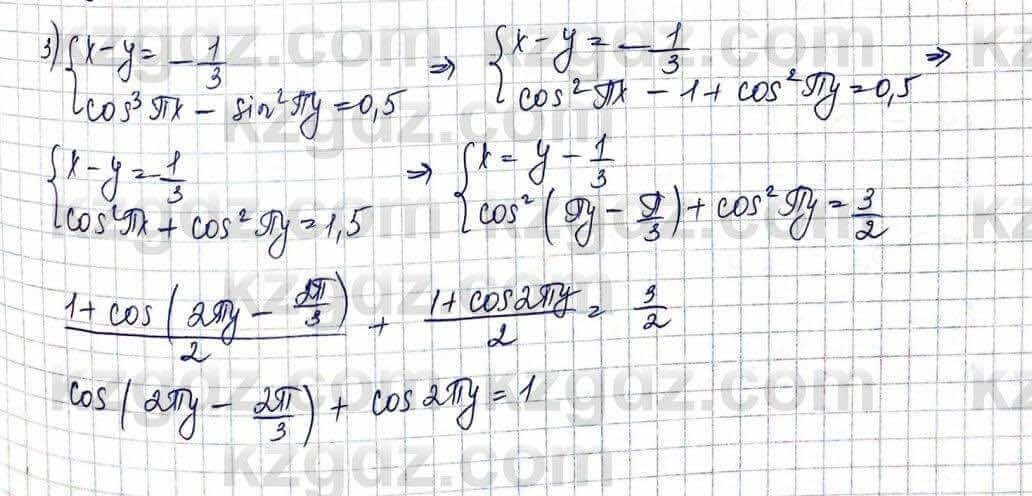 3) { x - y = - 1/3 ⇒ { x - y = - 1/3 ⇒
cos³ πx - sin² πy = 0,5 cos² πx - 1 + cos² πy = 0,5
{ x - y = - 1/3 ⇒ { x = y - 1/3
cos² πx + cos² πy = 1,5 cos² ( πy - π/3 ) + cos² πy = 3/2
1 + cos ( 2πy - 2π/3 ) / 2 + 1 + cos 2πy / 2 = 3/2
cos ( 2πy - 2π/3 ) + cos 2πy = 1
kzgdz.com